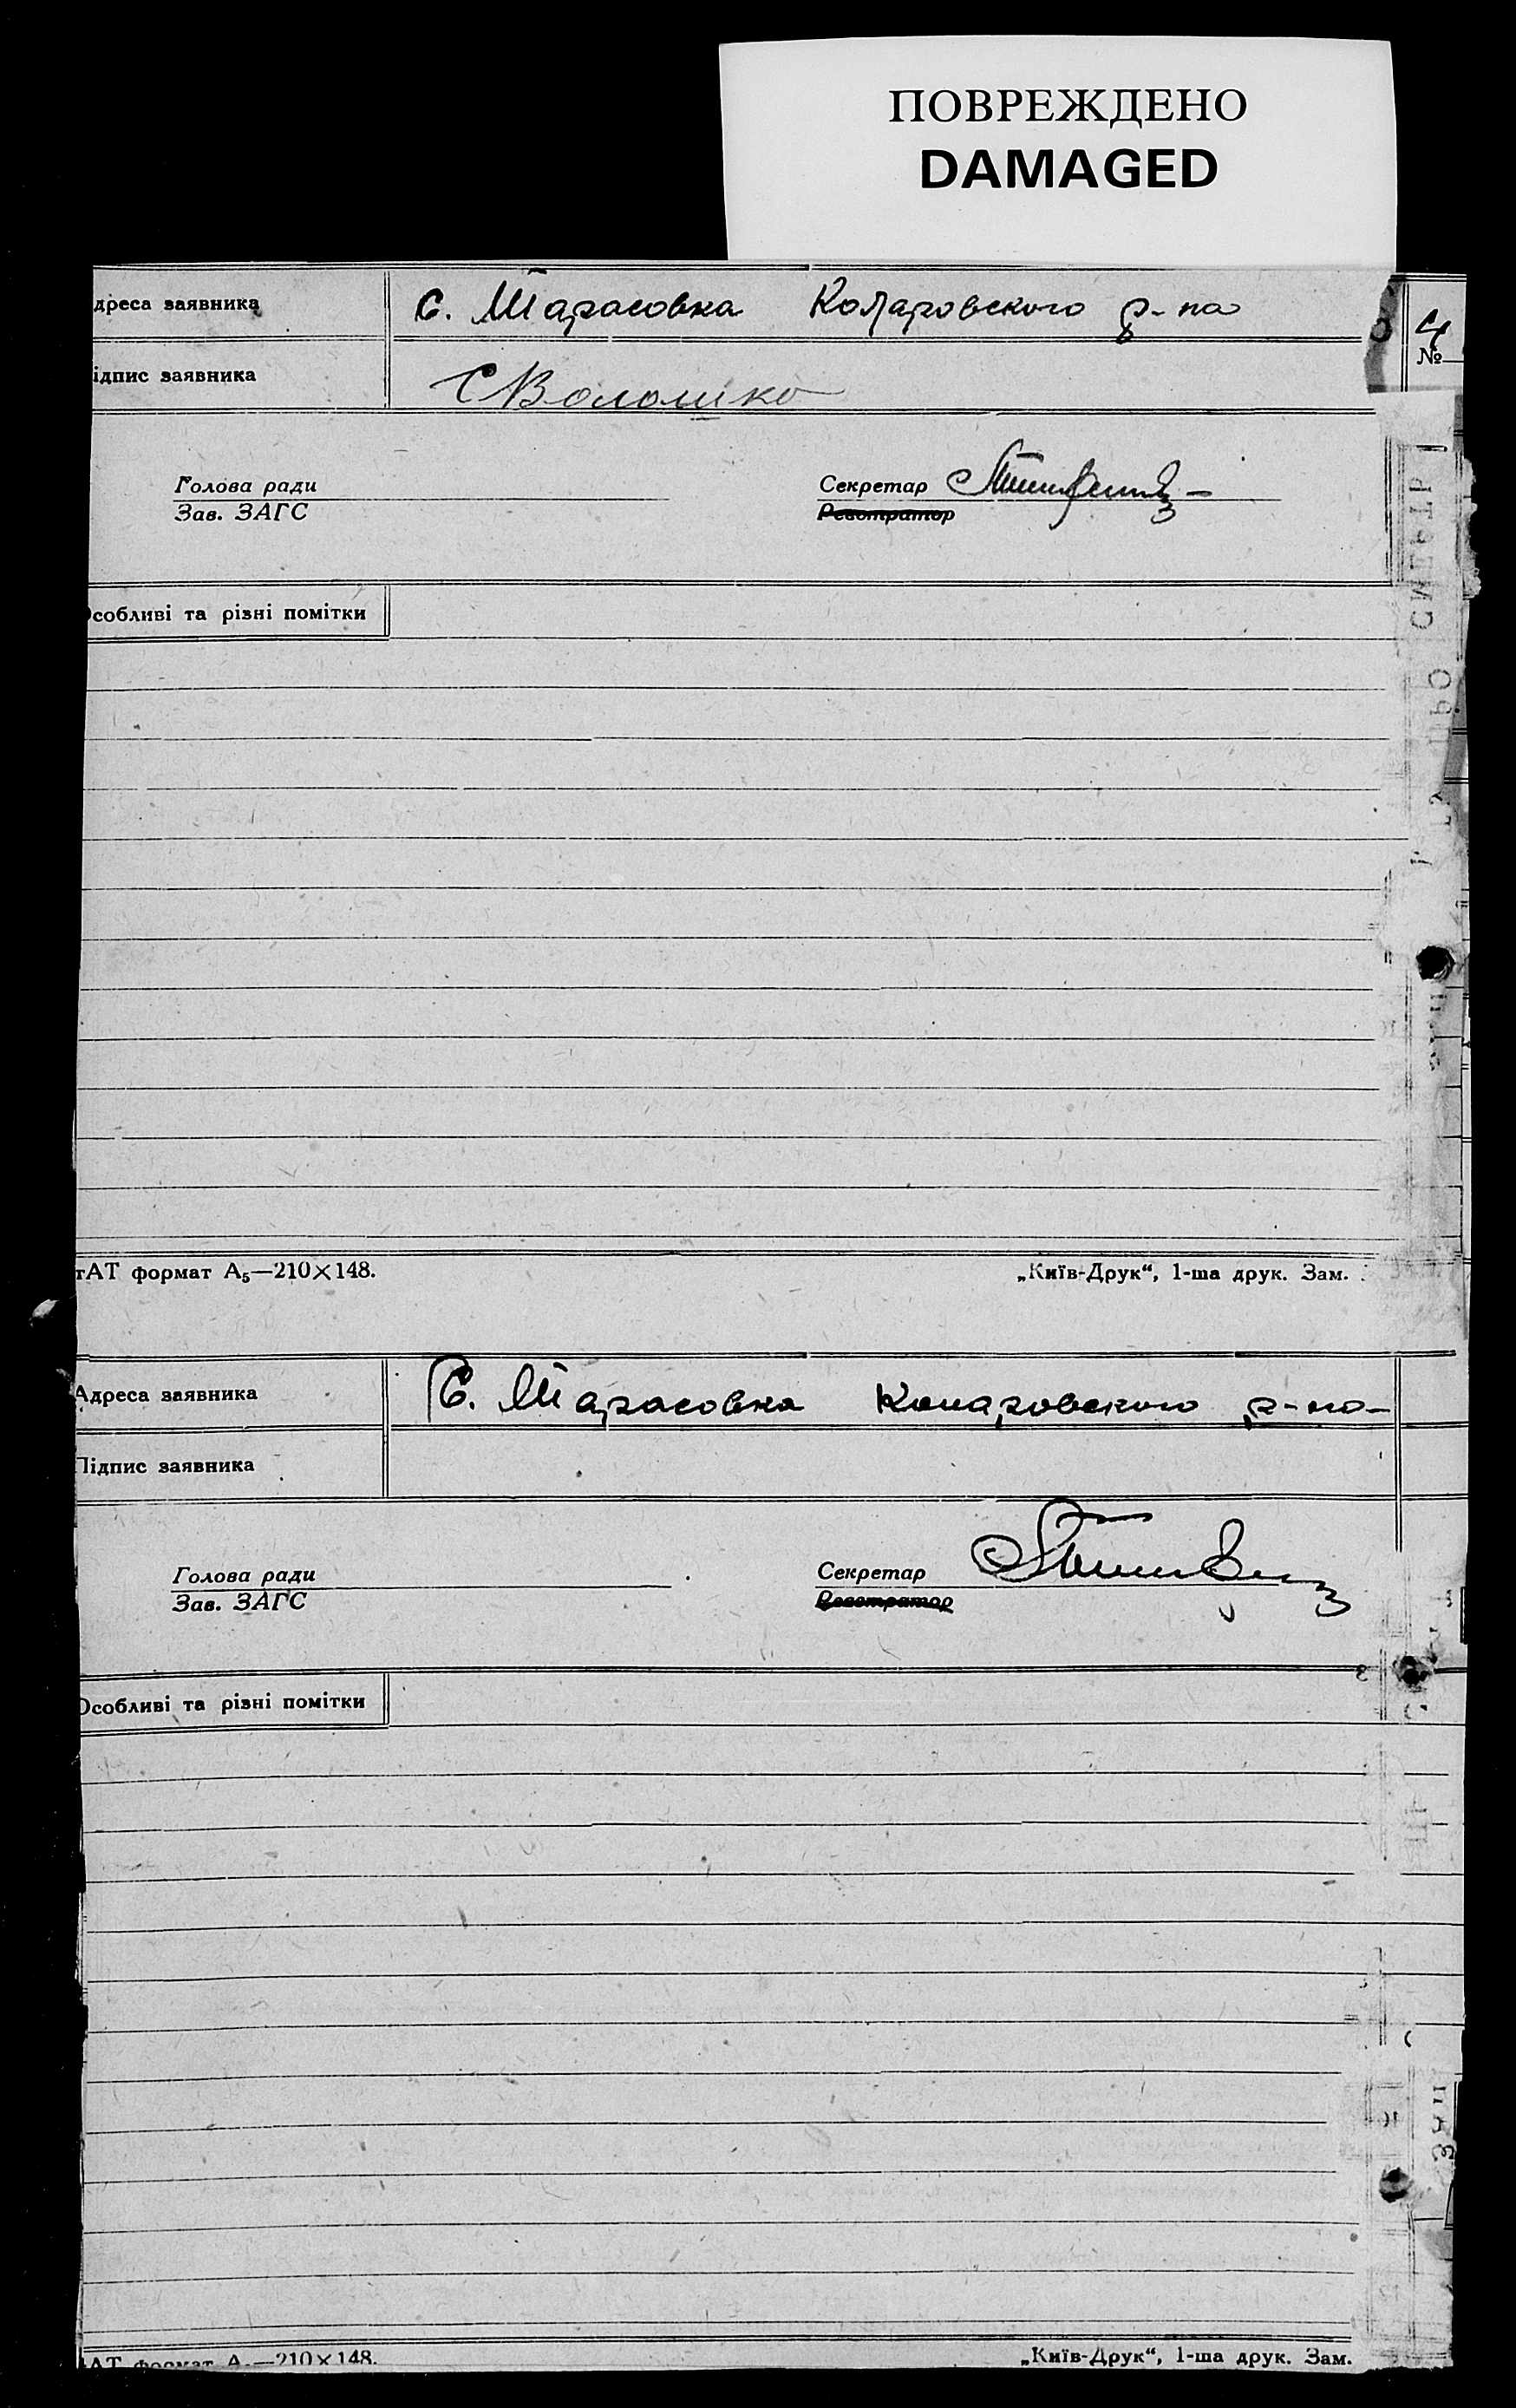 ПОВРЕЖДЕНО
DAMAGED
дреса заявника С. Тарасовка Коларовского р-на
4
№
ідпис заявника СВолошко
Голова ради Секретар
Зав. ЗАГС Реєстратор
собливі та різні помітки
тАТ формат А₅—210×148. „Київ-Друк“, 1-ша друк. Зам.
Адреса заявника С. Тарасовка Коларовского р-на-
Підпис заявника
Голова ради Секретар
Зав. ЗАГС Реєстратор
Особливі та різні помітки
АТ формат А₅—210×148. „Київ-Друк“, 1-ша друк. Зам.